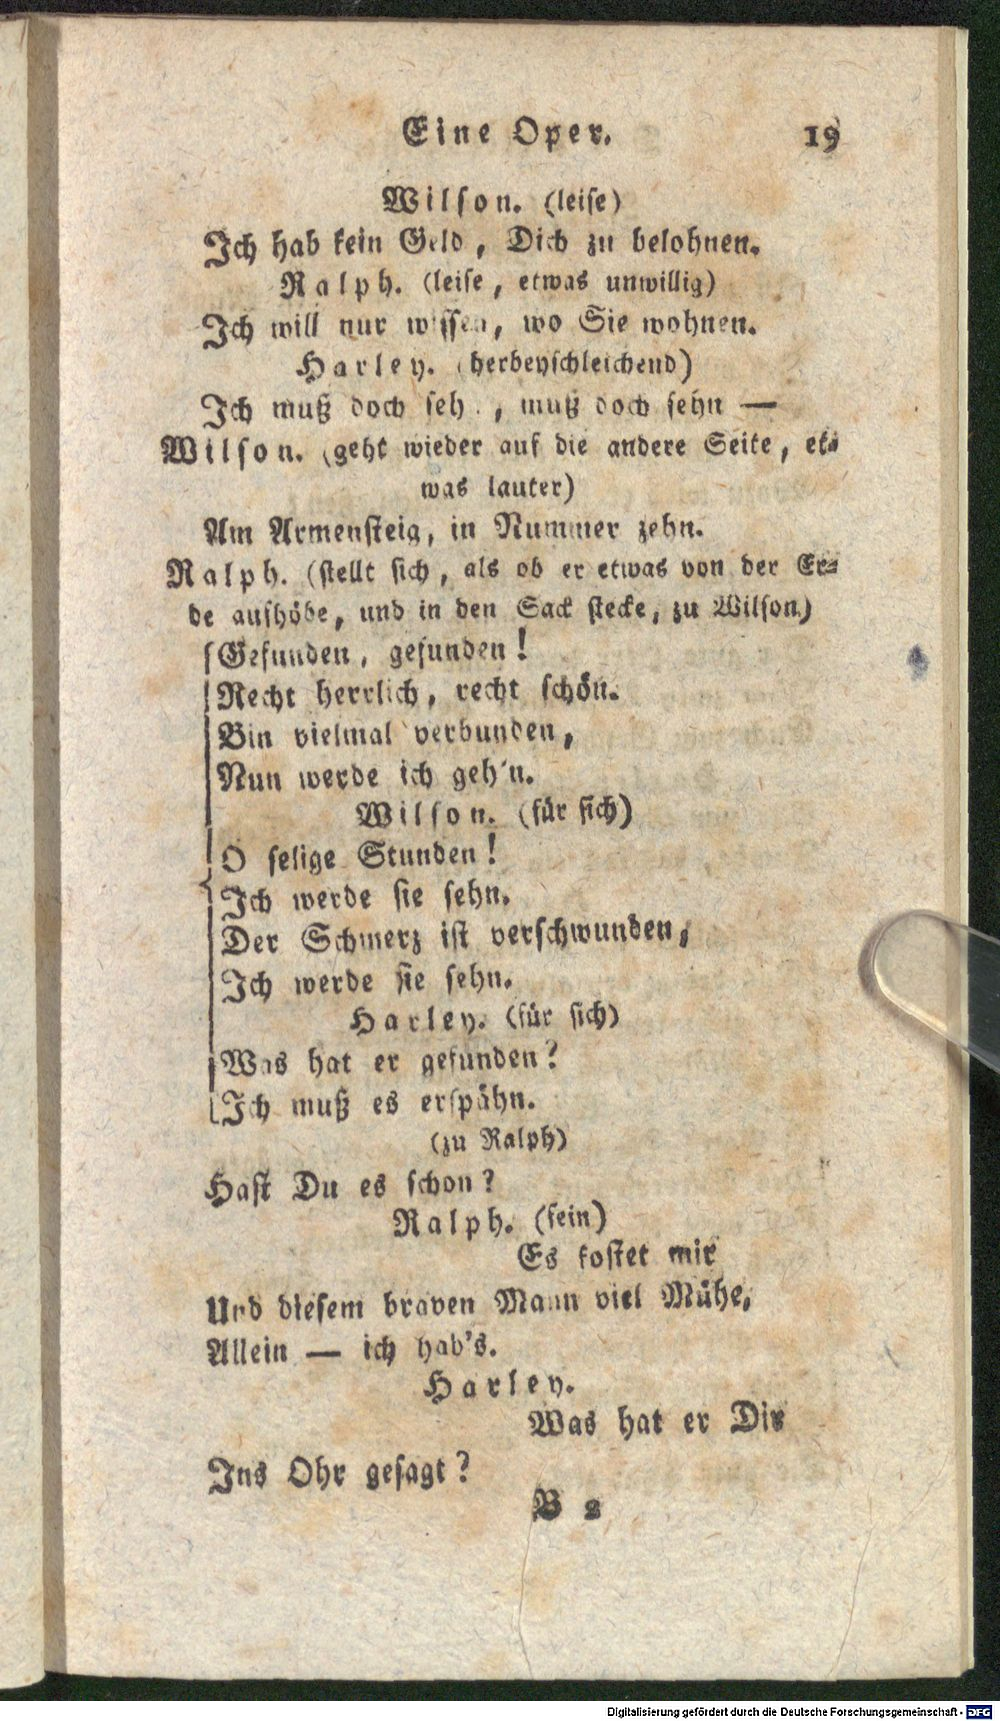 Eine Oper. 19
Wilson. (leise)
Ich hab kein Geld, Dich zu belohnen.
Ralph. (leise, etwas unwillig)
Ich will nur wissen, wo Sie wohnen.
Harley. (herbeyschleichend)
Ich muß doch seh , muß doch sehn —
Wilson. (geht wieder auf die andere Seite, et-
was lauter)
Am Armensteig, in Nummer zehn.
Ralph. (stellt sich, als ob er etwas von der Er-
de aufhöbe, und in den Sack stecke, zu Wilson)
Gefunden, gefunden!
Recht herrlich, recht schön.
Bin vielmal verbunden,
Nun werde ich geh'n.
Wilson. (für sich)
O selige Stunden!
Ich werde sie sehn.
Der Schmerz ist verschwunden,
Ich werde sie sehn.
Harley. (für sich)
Was hat er gefunden?
Ich muß es erspähn.
(zu Ralph)
Hast Du es schon?
Ralph. (fein)
Es kostet mir
Und diesem braven Mann viel Mühe,
Allein — ich hab's.
Harley.
Was hat er Dir
Ins Ohr gesagt?
B 2
Digitalisierung gefördert durch die Deutsche Forschungsgemeinschaft - DFG